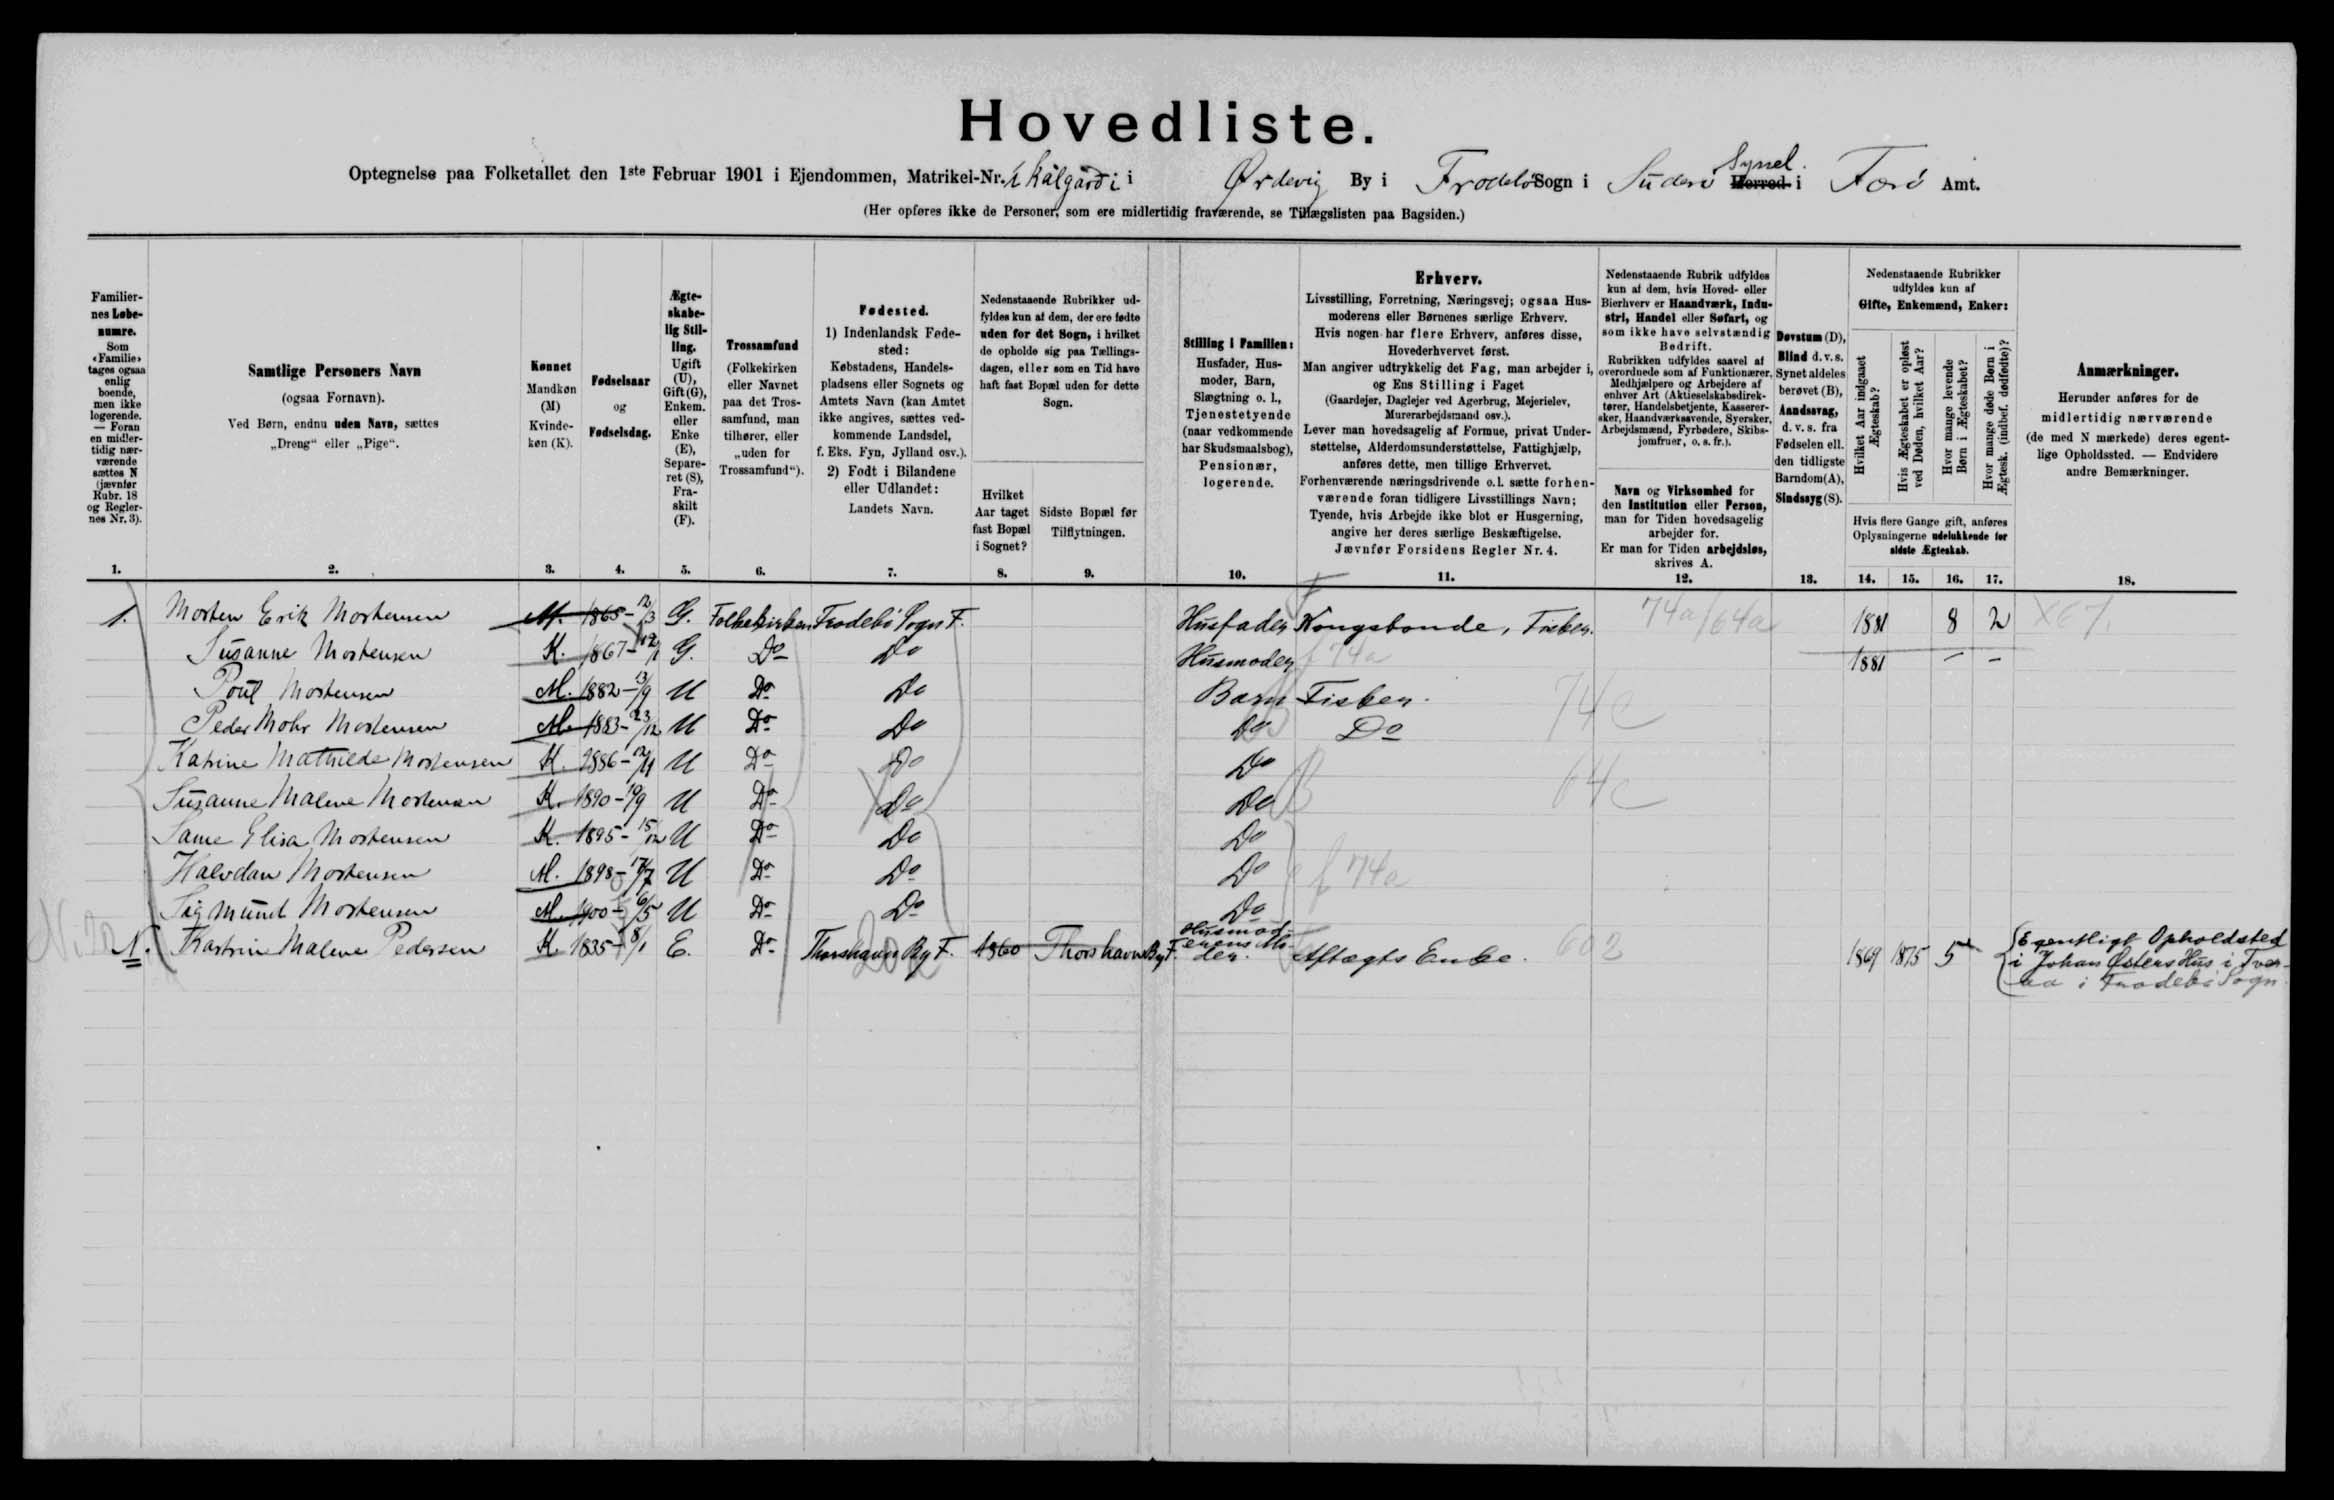 Hovedliste.
Optegnelse paa Folketallet den 1ste Februar 1901 i Ejendommen, Matrikel-Nr. i Kálgarði i Ørdevig By i Frodebö Sogn i Suderö Syssel. Herred i Færö Amt.
(Her opføres ikke de Personer, som ere midlertidig fraværende, se Tillægslisten paa Bagsiden.)
Familiernes Løbenumre.
Som «Familie» tages ogsaa enlig boende, men ikke logerende. — Foran en midlertidig nærværende sættes N (jævnfør Rubr. 18 og Reglernes Nr. 3).
1.
Samtlige Personers Navn
(ogsaa Fornavn).
Ved Børn, endnu uden Navn, sættes
„Dreng“ eller „Pige“.
2.
Kønnet
Mandkøn (M)
Kvindekøn (K).
3.
Fødselsaar
og
Fødselsdag.
4.
Ægteskabelig Stilling.
Ugift (U), Gift (G), Enkem. eller Enke (E), Separeret (S), Fraskilt (F).
5.
Trossamfund
(Folkekirken eller Navnet paa det Trossamfund, man tilhører, eller „uden for Trossamfund“).
6.
Fødested.
1) Indenlandsk Fødested:
Købstadens, Handelspladsens eller Sognets og Amtets Navn (kan Amtet ikke angives, sættes vedkommende Landsdel, f. Eks. Fyn, Jylland osv.).
2) Født i Bilandene eller Udlandet:
Landets Navn.
7.
Nedenstaaende Rubrikker udfyldes kun af dem, der ere fødte uden for det Sogn, i hvilket de opholde sig paa Tællingsdagen, eller som en Tid have haft fast Bopæl uden for dette Sogn.
Hvilket Aar taget fast Bopæl i Sognet?
8.
Sidste Bopæl før Tilflytningen.
9.
Stilling i Familien:
Husfader, Husmoder, Barn, Slægtning o. l., Tjenestetyende (naar vedkommende har Skudsmaalsbog), Pensionær, logerende.
10.
Erhverv.
Livsstilling, Forretning, Næringsvej; ogsaa Husmoderens eller Børnenes særlige Erhverv.
Hvis nogen har flere Erhverv, anføres disse, Hovederhvervet først.
Man angiver udtrykkelig det Fag, man arbejder i, og Ens Stilling i Faget
(Gaardejer, Daglejer ved Agerbrug, Mejerielev, Murerarbejdsmand osv.).
Lever man hovedsagelig af Formue, privat Understøttelse, Alderdomsunderstøttelse, Fattighjælp, anføres dette, men tillige Erhvervet.
Forhenværende næringsdrivende o. l. sætte forhenværende foran tidligere Livsstillings Navn;
Tyende, hvis Arbejde ikke blot er Husgerning, angive her deres særlige Beskæftigelse.
Jævnfør Forsidens Regler Nr. 4.
11.
Nedenstaaende Rubrik udfyldes kun af dem, hvis Hoved- eller Bierhverv er Haandværk, Industri, Handel eller Søfart, og som ikke have selvstændig Bedrift.
Rubrikken udfyldes saavel af overordnede som af Funktionærer, Medhjælpere og Arbejdere af enhver Art (Aktieselskabsdirektører, Handelsbetjente, Kasserersker, Haandværkssvende, Syersker, Arbejdsmænd, Fyrbødere, Skibsjomfruer, o. s. fr.).
Navn og Virksomhed for den Institution eller Person, man for Tiden hovedsagelig arbejder for.
Er man for Tiden arbejdsløs, skrives A.
12.
Døvstum (D), Blind d. v. s. Synet aldeles berøvet (B), Aandssvag, d. v. s. fra Fødselen ell. den tidligste Barndom (A), Sindssyg (S).
13.
Nedenstaaende Rubrikker udfyldes kun af
Gifte, Enkemænd, Enker:
Hvilket Aar indgaaet Ægteskab?
Hvis Ægteskabet er opløst ved Døden, hvilket Aar?
Hvor mange levende Børn i Ægteskabet?
Hvor mange døde Børn i Ægtesk. (indbef. dødfødte)?
Hvis flere Gange gift, anføres Oplysningerne udelukkende for sidste Ægteskab.
14. 15. 16. 17.
Anmærkninger.
Herunder anføres for de midlertidig nærværende (de med N mærkede) deres egentlige Opholdssted. — Endvidere andre Bemærkninger.
18.
1. Morten Erik Mortensen M. 1865 - 12/3 G. Folkekirken Frodebö Sogn F. Husfader Kongsbonde, Fisker. 74a/64a 1881 8 2 X67.
Susanne Mortensen K. 1867 - 12/1 G. Do Do Husmoder f 74a 1881 - -
Poul Mortensen M. 1882 - 13/9 U Do Do Barn Fisker. 74c
Peder Mohr Mortensen M. 1883 - 23/12 U Do Do Do Do
Katrine Mathilde Mortensen K. 1886 - 12/11 U Do Do Do 64c
Susanne Malene Mortensen K. 1890 - 19/9 U Do Do Do
Sanne Elisa Mortensen K. 1895 - 15/12 U Do Do Do
Halvdan Mortensen M. 1898 - 17/7 U Do Do Do f 74a
Sigmund Mortensen M. 1900 - 6/5 U Do Do Do
N. Kastrine Malene Pedersen K. 1835 - 8/1 E. Do Thorshavn By F. 1860 Thorshavn By F. Husmoderens Moder. Aftægts Enke. 602 1869 1875 5 Egentligt Opholdsted
i Johan Østers Hus i Tver-
aa i Frodebö Sogn.